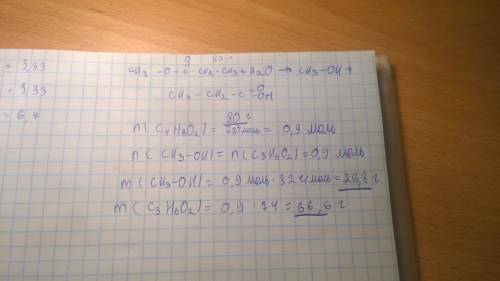 = 3,33
= 3,33
= 6,4
g 80 г
CH3 -O-C-CH2-CH3+H2O → CH3-OH+
CH3 - CH2 - C =O -OH
n( C4H3O2)= 80 г / 88 г/моль = 0,9 моль
n( CH3-OH)= n(C3H6O2)=0,9 моль
m( CH3-OH)= 0,9 моль · 32 г/моль=28,8 г
m( C3H6O2)= 0,9 · 74 = 66,6 г